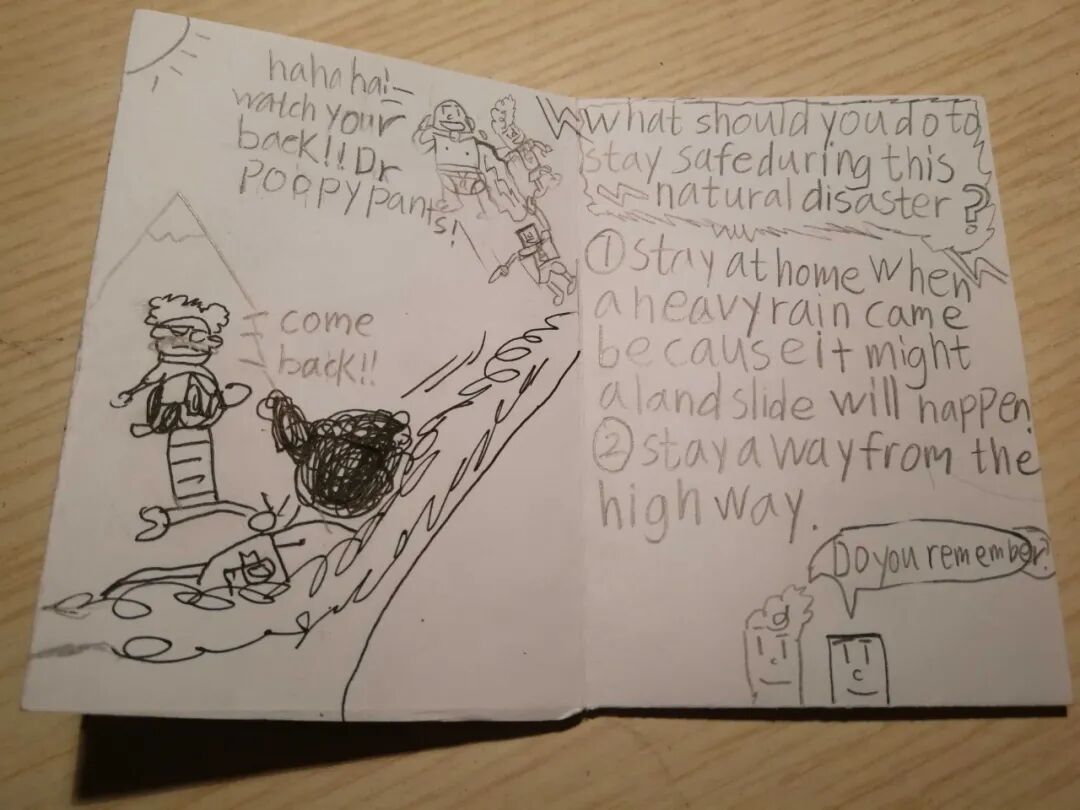 hahaha!
watch your
back!! Dr
poopypants!
come
back!!
What should you do to
stay safe during this
natural disaster?
① stay at home when
a heavy rain came
because it might
a landslide will happen.
② stay away from the
highway.
Do you remember?